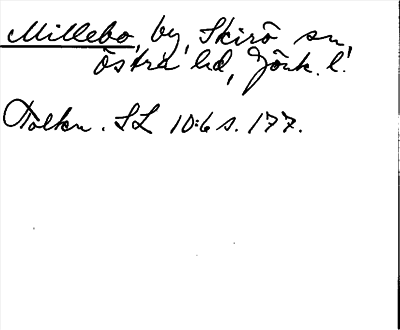 Millebo, by, Skirö sn,
Östra hd, Jönk. l.
Tolkn. SL 10:6 s. 177.